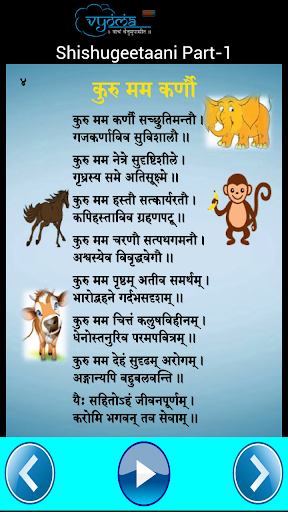 vyoma
॥ वाचं धेनुमुपासीत ॥
Shishugeetaani Part-1
४
कुरु मम कर्णौ
कुरु मम कर्णौ सच्छ्रुतिमन्तौ ।
गजकर्णाविव सुविशालौ ॥
कुरु मम नेत्रे सुदृष्टिशीले ।
गृध्रस्य समे अतिसूक्ष्मे ॥
कुरु मम हस्तौ सत्कार्यरतौ ।
कपिहस्ताविव ग्रहणपटू ॥
कुरु मम चरणौ सत्पथगमनौ ।
अश्वस्येव विवृद्धवेगौ ॥
कुरु मम पृष्ठम् अतीव समर्थम् ।
भारोद्वहने गर्दभसदृशम् ॥
कुरु मम चित्तं कलुषविहीनम् ।
धेनोस्तनुरिव परमपवित्रम् ॥
कुरु मम देहं सुदृढम् अरोगम् ।
अङ्गान्यपि बहुबलवन्ति ॥
यैः सहितोऽहं जीवनपूर्णम् ।
करोमि भगवन् तव सेवाम् ॥